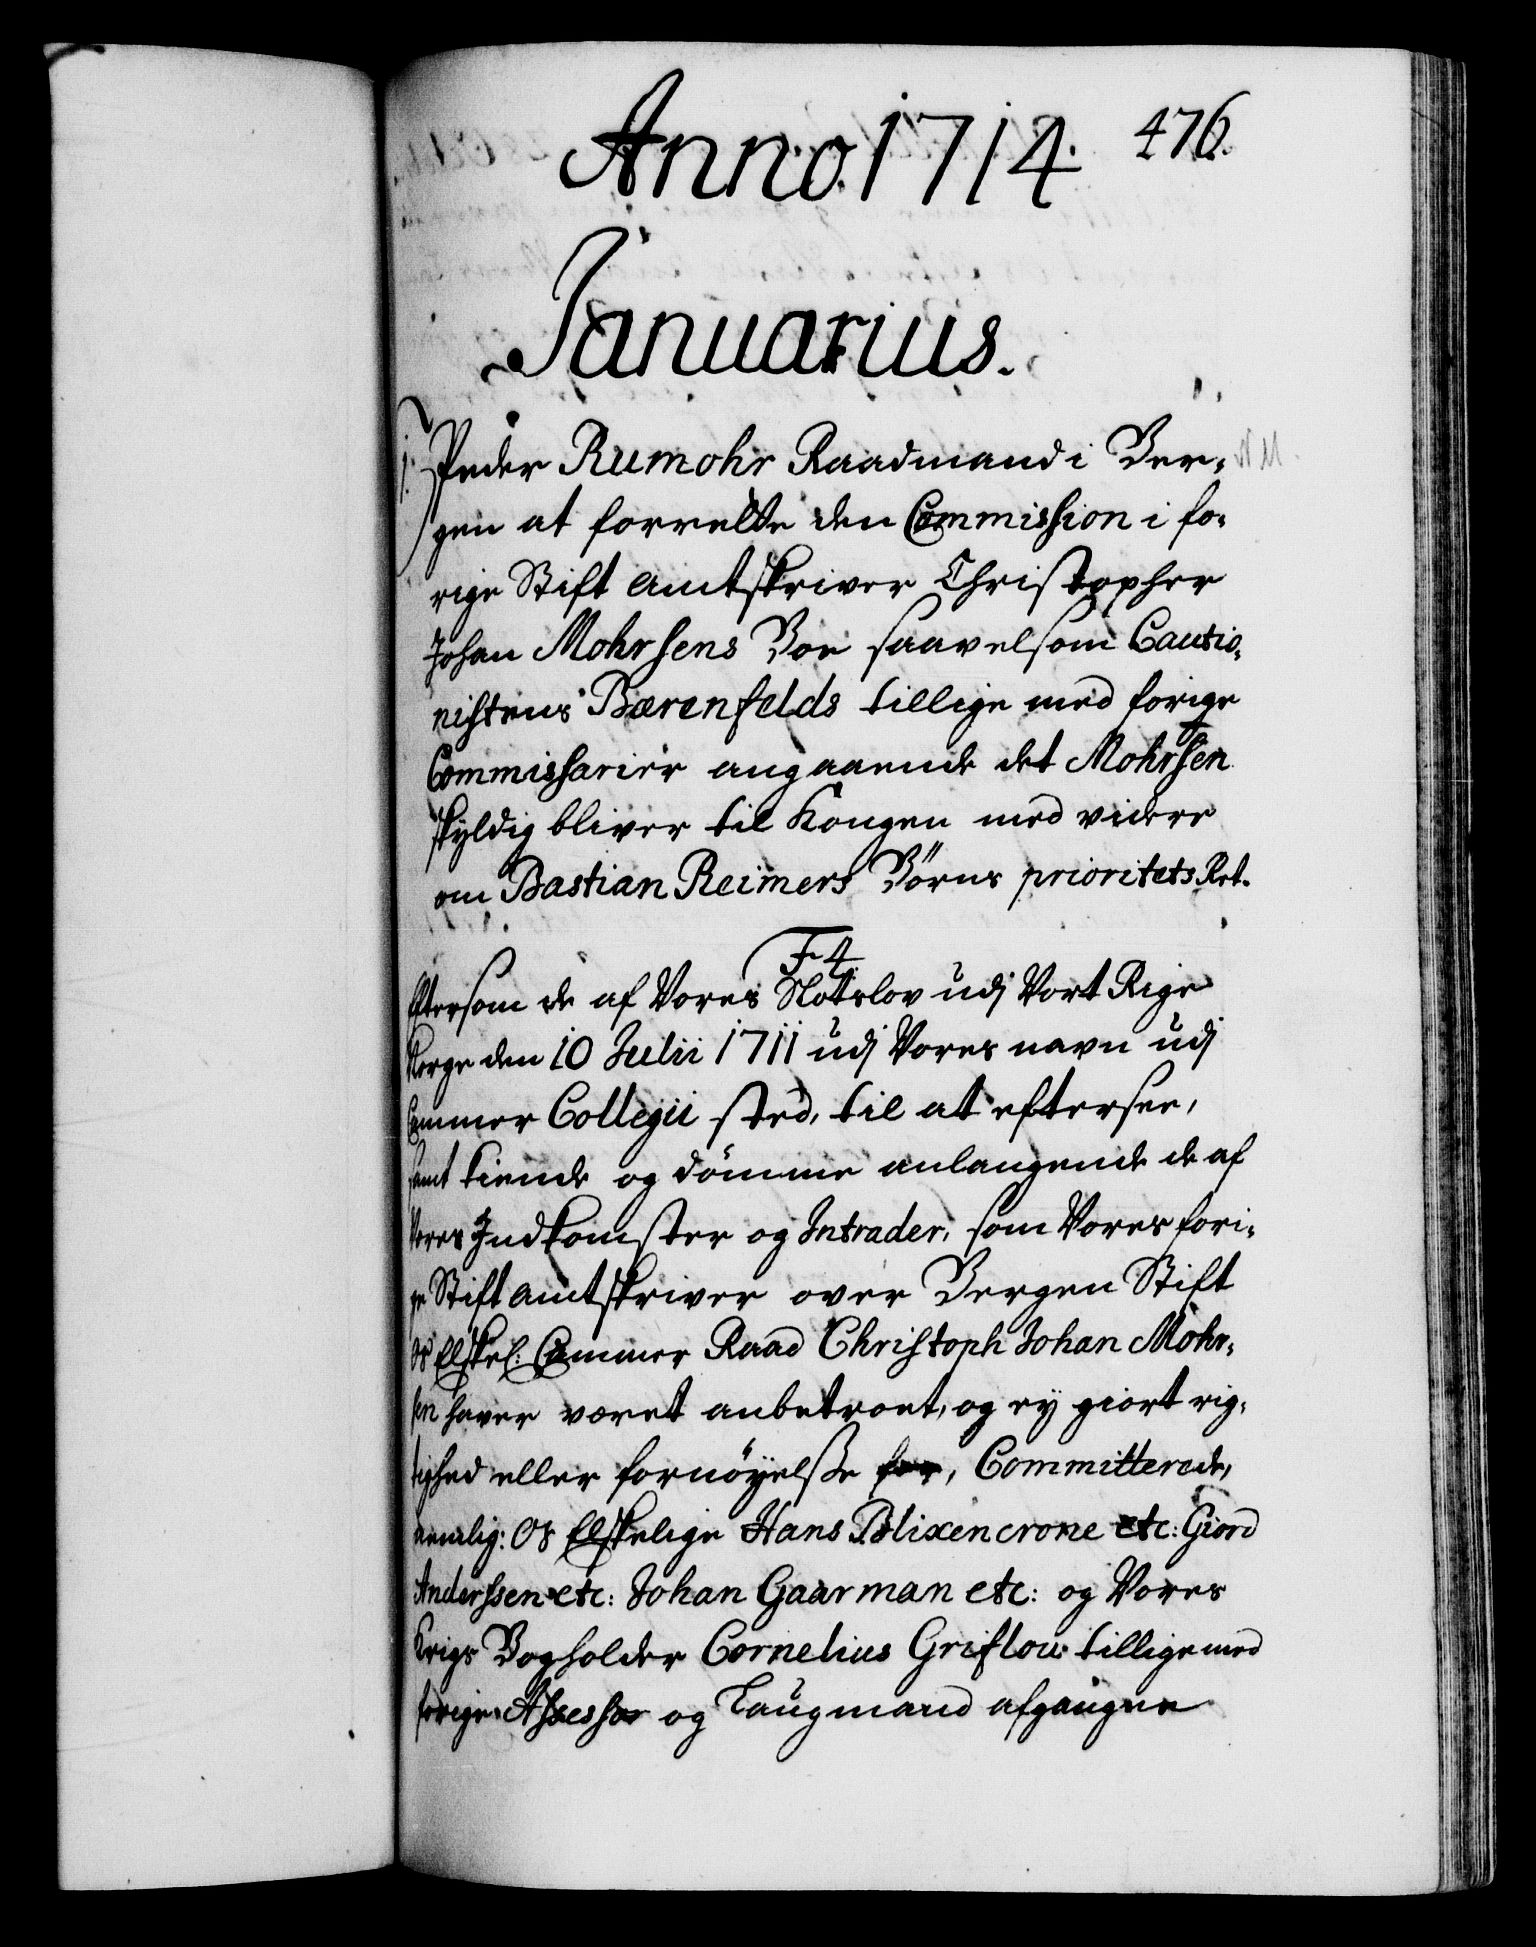 Anno 1714. 476.
Januarius.
1. Peder Rumohr Raadmand i Ber-
gen at forrette den Commission i fo-
rige Stift amtskriver Christopher
Johan Mohrsens Boe saavelsom Cautio-
nistens Bærenfelds tillige med forige
Commissarier angaaende det Mohrsen
skyldig bliver til Kongen med videre
om Bastian Reimers Börns prioritets Ret.
F 4.
Eftersom de af Vores Slotslov udj Vort Rige
Norge den 10 Julii 1711 udj Vores navn udj
Cammer Collegii sted, til at eftersee,
samt kiende og dömme anlangende de af
Vores Indkomster og Intrader, som Vores fori-
ge Stift amtskriver over Bergen Stift
os Elskel: Cammer Raad Christoph Johan Mohr-
sen haver været anbetroet, og ey giort rig-
tighed eller fornöyelsse for, Committerede,
nemlig: Os Elskelige Hans Blixencrone etc: Giord
Anderssen etc: Johan Gaarman etc: og Vores
Krigs Bogholder Cornelius Griflow tillige med
forige Assessor og Laugmand afgangne